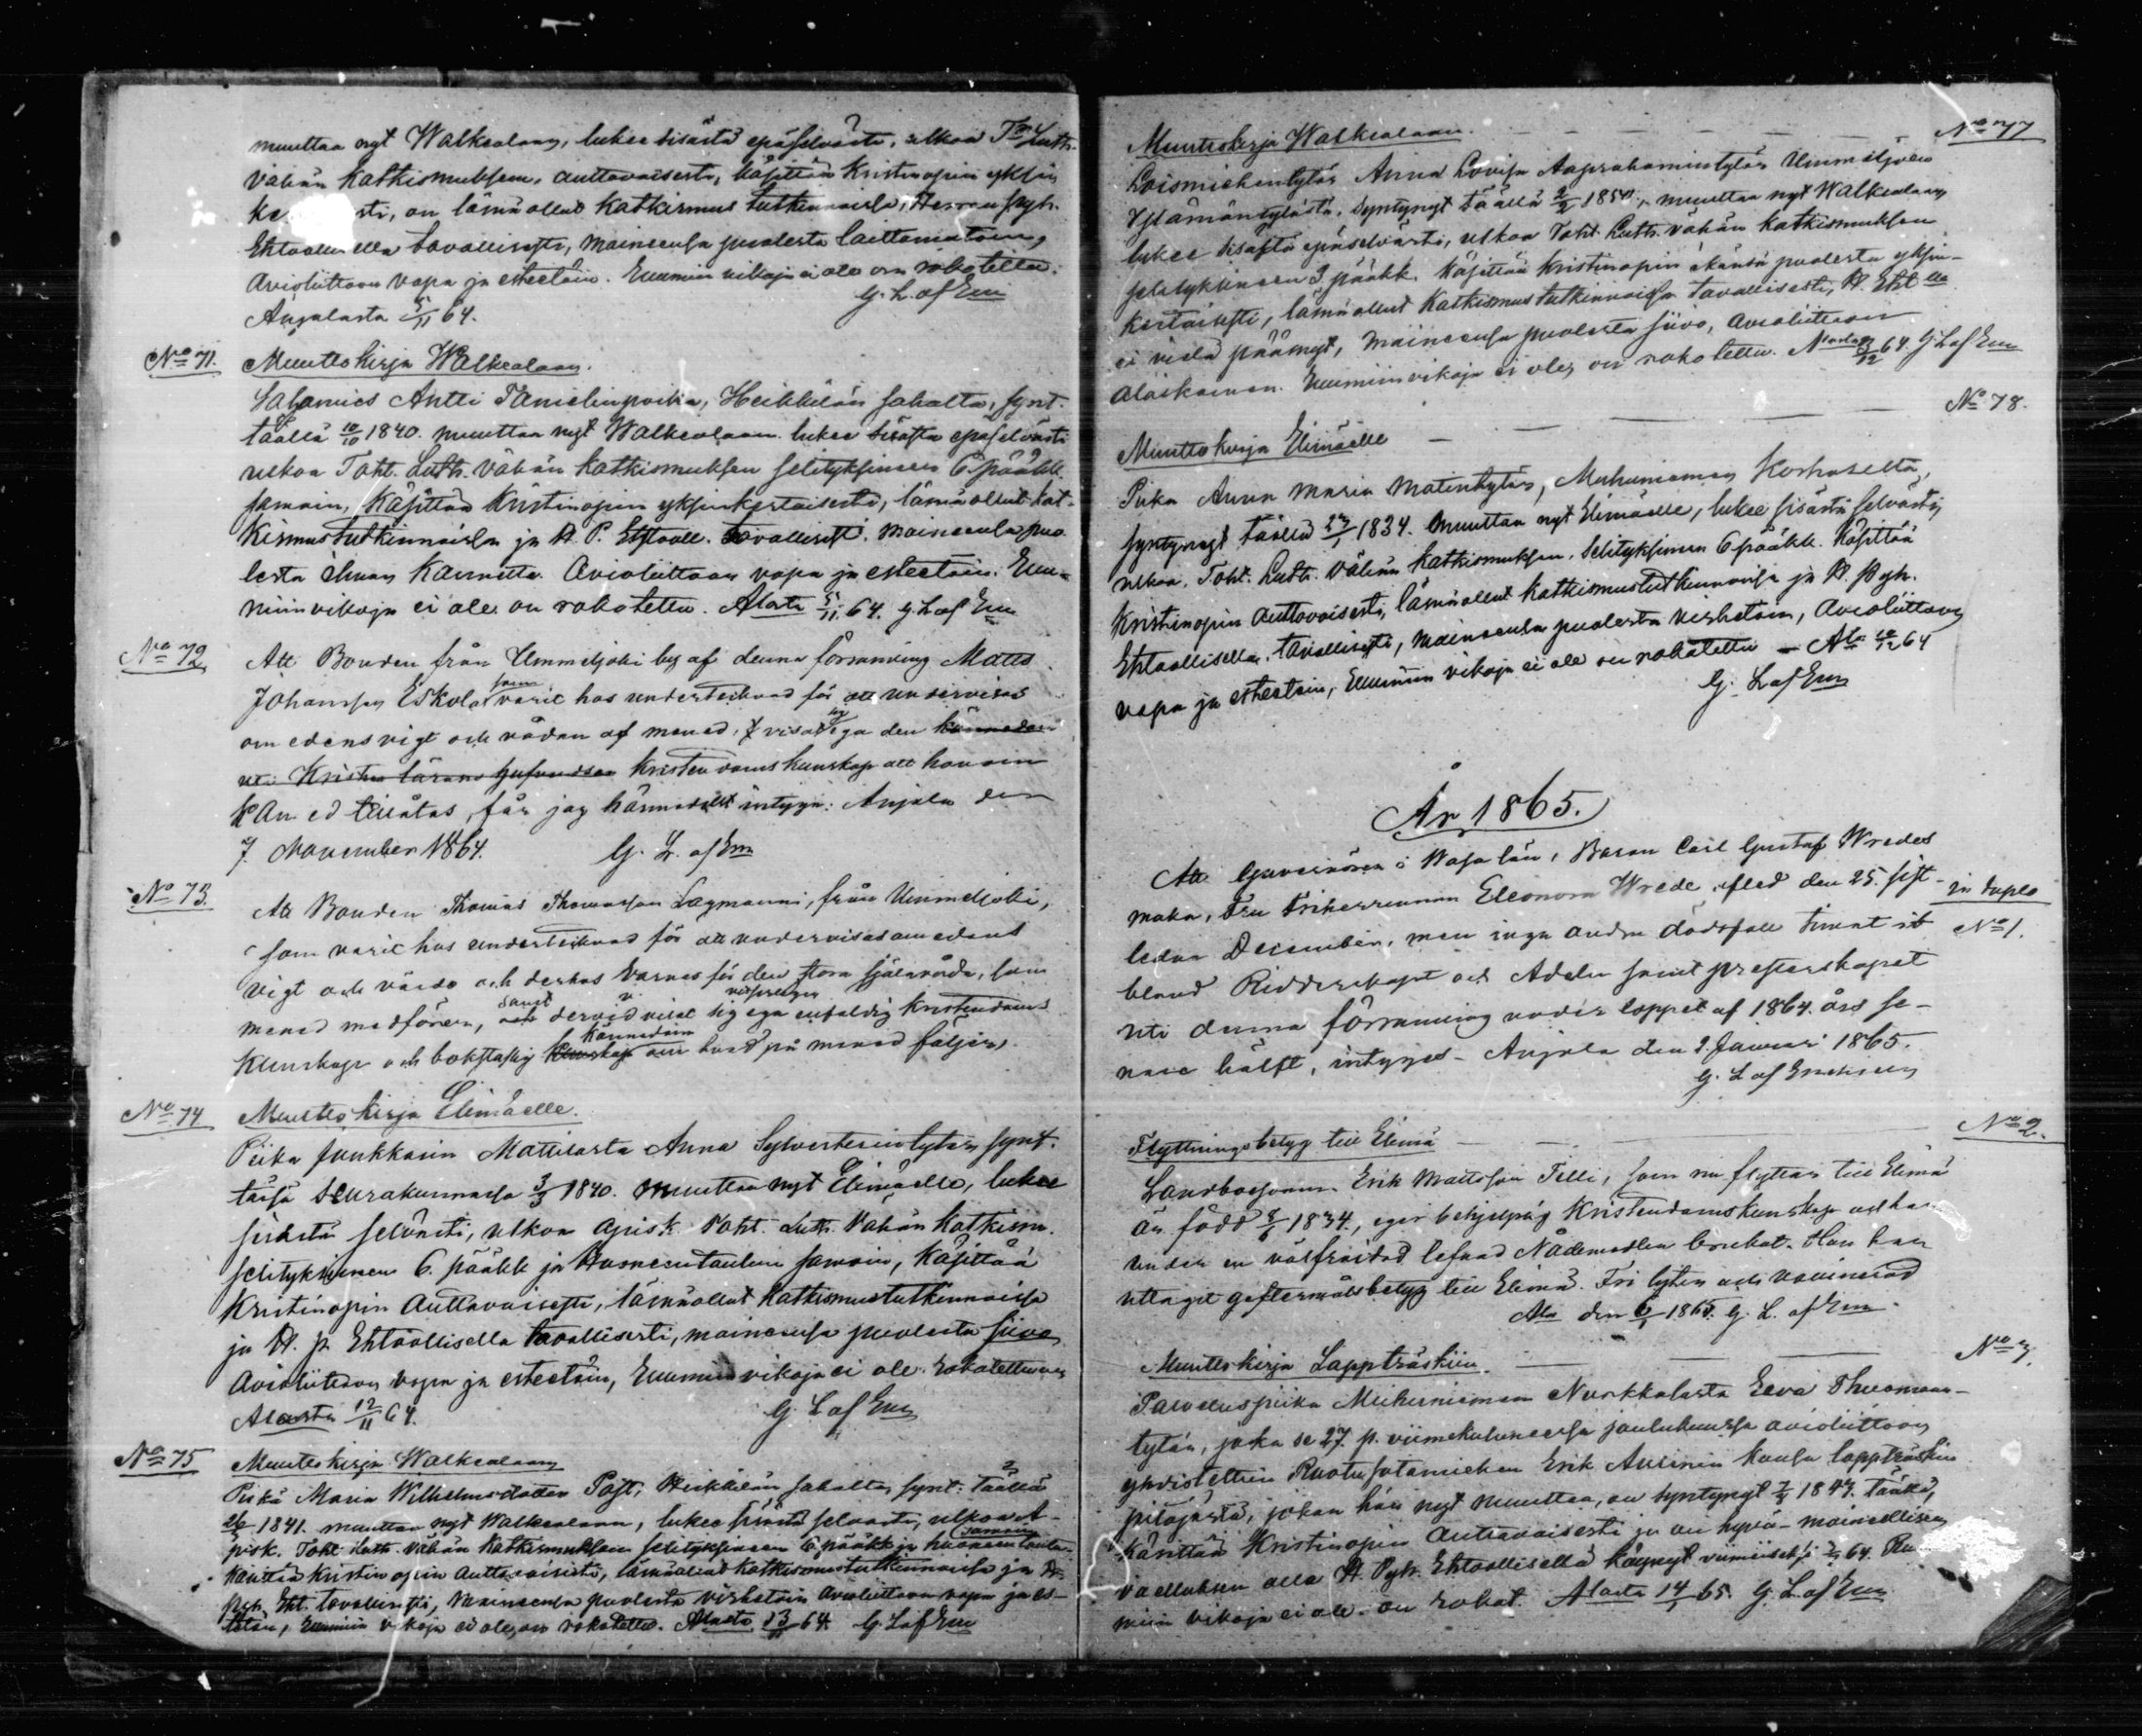 muuttaa nyt Walkealaan, lukee sisästä epäselvästi, ulkoa Toht. Luth.
vähän Katkismuksen, auttavaisesti, käsittää Kristinopin yksin
ke sti, on läsnä ollut Katkismus tutkinnoissa, Herran pyh.
Ehtoollisella tavallisesti, maineensa puolesta laittamatoin,
Avioliittoon vapa ja esteetöin. Ruumiin vikoja ei ole on rokotettu.
Anjalasta 5/11 64. G. L. af Em
No 71. Muuttokirja Walkealaan.
Sahamies Antti Tanielinpoika, Heikkilän sahalta, synt.
täällä 10/10 1840. muuttaa nyt Walkealaan. lukee sisästä epäselvästi
ulkoa Toht. Luth. Vähän katkismuksen selityksineen 6 pääkk.
samoin, Käsittää Kristinopin yksinkertaisesti, läsnä ollut kat-
kismustutkinnoissa ja H. P. Ehtooll. tavallisesti. Maineensa puo
lesta ilman kannetta. Avioliittoon vapa ja esteetöin. Ruu-
miin vikoja ei ole on rokotettu. Alasta 5/11 64. G. L af Em
No 72 Att Bonden från Ummeljoki by af denna församling Matts
Johansson Eskola som varit hos undertecknad för att undervisas
om edens vigt och vådan af mened, visat sig ega den kännedom
Kristna lärans Kristendomskunskap att honom
kan ed tillåtas, får jag härmedelst intyga: Anjala den
7 November 1864. G. L. af Em
No 73. Att Bonden Thomas Thomasson Lagmanni, från Ummeljoki,
som varit hos undertecknad för att undervisas om edens
vigt och värde och derhos varnas för den stora själavåda, som
mened medförer, samt dervid visat sig ega enfaldig Kristendoms
Kunskap och bokstaflig kännedom om hvad på mened följer,
No 74 Muuttokirja Elimäelle.
Piika Junkkarin Mattilasta Anna Sylvesterintytär synt.
tässä Seurakunnassa 3/3 1840. muuttaa nyt Elimäelle, lukee
sisästä selvästi, ulkoa apisk. Toht. Luth. Vähän Katkism.
selityksineen 6. pääkk ja Huoneentaulun samoin, Käsittää
Kristinopin Auttavaisesti, läsnäollut Katkismustutkinnoissa
ja H. p. Ehtoollisella tavallisesti, maineensa puolesta siivo
Avioliittoon vapa ja esteetöin, Ruumiin vikoja ei ole rokotettu on
Alasta 12/11 64. G. L af Em
No 75 Muuttokirja Walkealaan
Piika Maria Wilhelmsdotter Post, Heikkilän sahalta, synt. täällä
1841. muuttaa nyt Walkealaan, lukee sisästä selvästi, ulkoa A-
pisk. Toht Luth. Vähän Katkismuksen selityksineen 6 pääkk ja huoneentaulun samoin
Käsittää Kristinopin auttavaisesti, läsnäollut Katkismustutkinnoissa ja H.
Pyh. Eht. tavallisesti, Maineensa puolesta virhetöin Avioliittoon vapa ja es-
tetön, Ruumiin vikoja ei ole, on rokotettu. Alasta 13/11 64. G. L af Em
Muuttokirja Walkealaan. No 77
Loismiehentytär Anna Lovisa Aaprahamintytär Ummeljoen
kylästä, syntynyt täällä 2/2 1850., muuttaa nyt Walkealaan
lukee sisästä epäselvästi, ulkoa Toht. Luth. vähän katkismuksen
selityksineen 3 pääkk. Käsittää Kristinopin ikänsä puolesta yksin-
kertaisesti, läsnäollut Katkismustutkinnoissa tavallisesti, H. Eht.lla
ei vielä päässyt, maineensa puolesta siivo, Avioliittoon
alaikäinen. Ruumiin vikoja ei ole, on rokotettu. 64. G. L af Em
No 78.
Muuttokirja Elimäelle
Piika Anna Maria Matintytär, Muhniemen Korhoselta,
syntynyt täällä 1834. Muuttaa nyt Elimäelle, lukee sisästä selvästi,
ulkoa, Toht. Luth. Vähän Katkismuksen, Selityksineen 6 pääkk. Käsittää
Kristinopin Auttavaisesti, läsnäollut Katkismustutkinnoissa ja H. Pyh.
Ehtoollisella, tavallisesti, Maineensa puolesta virhetöin, Avioliittoon
vapa ja esteetöin, Ruumiin vikoja ei ole on rokotettu – Ala 10/12 64
G. L af Em
År 1865.
Att Guvernören i Wasa län, Baron Carl Gustaf Wredes
maka, Fru Friherrinnan Eleonora Wrede, afled den 25. sist- in duplo
ledne December, men inga andra dödsfall timat No 1.
bland Ridderskapet och Adeln samt presterskapet
uti denna församling under loppet af 1864. års se-
nare hälft, intygas – Anjala den 2. Januari 1865.
G. L af Enehielm
Flyttningsbetyg till Elimä No 2.
Landbosonen Erik Mattsson Tilli, som nu flyttar till Elimä
är född 8/8 1834., eger behjelplig Kristendomskunskap och har
under en välfrejdad lefnad Nådemedlen brukat. Han har
uttagit giftermålsbetyg till Elimä. Fri lyten och vaccinerad
Ala den 6/1 1865. G. L. af Em.
Muuttokirja Lappträskiin. No 3.
Palveluspiika Muhniemen Nurkkalasta Eeva Thuomaan-
tytär, joka se 27. p. viimekuluneessa joulukuussa avioliittoon
yhdistettiin Ruotusotamiehen Erik Aurinin kanssa lappträskin
pitäjästä, johon hän nyt muuttaa, on syntynyt 1847. täällä,
Käsittää Kristinopin Auttavaisesti ja on hyvä-mainellisen
vaelluksen alla H. Pyh. Ehtoollisella käynyt viimeiseksi 64. Ru
miin vikoja ei ole. on rokot. Alasta 14/1 65. G. L. af Em